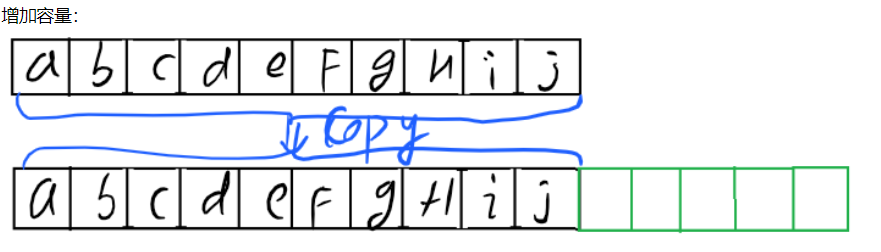 增加容量：
a b c d e F g H i j
Copy
a b c d e F g H i j